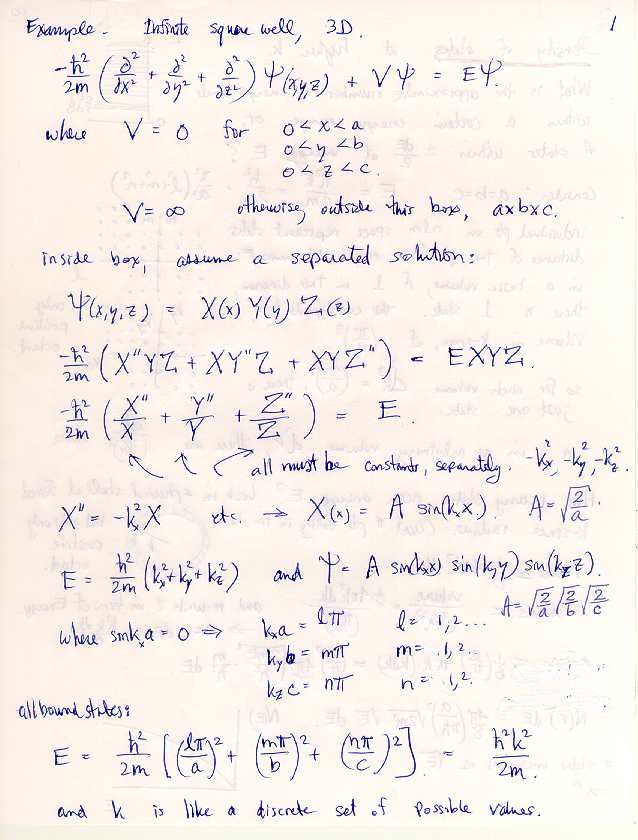 Example. Infinite square well, 3D. 1
-ħ²/2m (∂²/∂x² + ∂²/∂y² + ∂²/∂z²) Ψ(x,y,z) + VΨ = EΨ.
where V = 0 for 0<x<a
0<y<b
0<z<c.
V = ∞ otherwise, outside this box, axbxc.
inside box, assume a separated solution:
Ψ(x,y,z) = X(x) Y(y) Z(z)
-ħ²/2m (X"YZ + XY"Z + XYZ") = EXYZ.
-ħ²/2m (X"/X + Y"/Y + Z"/Z) = E.
all must be constants, separately. -kx², -ky², -kz².
X" = -kx²X etc. ⇒ X(x) = A sin(kxx). A = √(2/a).
E = ħ²/2m (kx²+ky²+kz²) and Ψ = A sin(kxx) sin(kyy) sin(kzz).
A = √(2/a) √(2/b) √(2/c)
where sinkxa = 0 ⇒ kxa = lπ l = 1,2...
kyb = mπ m = 1,2..
kzc = nπ n = 1,2.
all bound states:
E = ħ²/2m [(lπ/a)² + (mπ/b)² + (nπ/c)²] = ħ²k²/2m.
and k is like a discrete set of possible values.